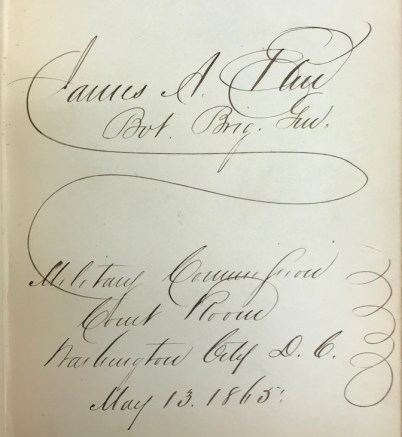 James A. Ekin
Bvt. Brig. Gen.
Military Commission
Court Room
Washington City D. C.
May 13. 1865.